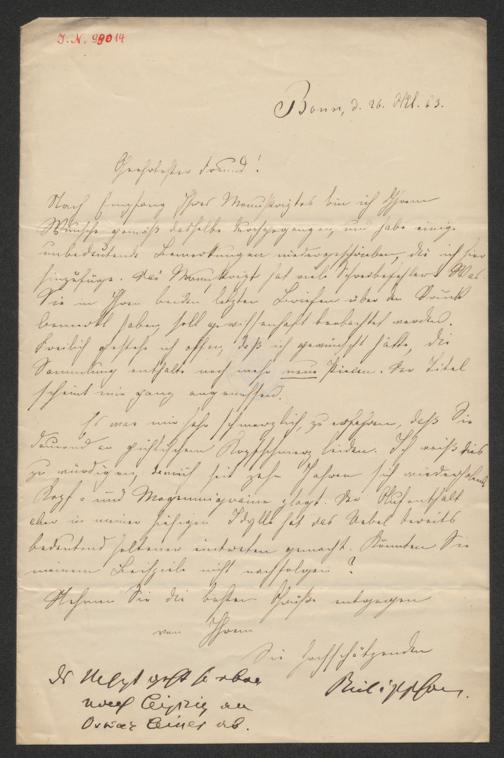 I.N. 98014
Bonn, d. 26. Okt. 63.
Geehrtester Freund!
Nach Empfang Ihres Manuskriptes bin ich Ihrem
Wunsche gemäß dasselbe durchgegangen, und habe einige
unbedeutende Bemerkungen niedergeschrieben, die ich hier
hinzufüge. Das Manuskript hat viele Schreibefehler. Was
Sie in Ihren beiden letzten Briefen über den Druck
bemerkt haben, soll gewissenhaft beobachtet werden.
Freilich gestehe ich offen, daß ich gewünscht hätte, die
Sammlung enthalte noch mehr neue Piecen. Der Titel
scheint mir ganz angemessen.
Es war mir sehr schmerzlich, zu erfahren, daß Sie
dauernd an gichtischem Kopfschmerz leiden. Ich weiß dies
zu würdigen, da mich seit zehn Jahren sich wiederholende
Kopf- und Magenmigraine plagt. Der Aufenthalt
aber in meiner hiesigen Idylle hat das Uebel bereits
bedeutend seltener eintreten gemacht. Könnten Sie
meinem Beispiele nicht nachfolgen?
Nehmen Sie die besten Grüße entgegen
von Ihrem
Sie hochschätzenden
Philippson.
geht so eben
nach Leipzig an
Oskar Leiner ab.